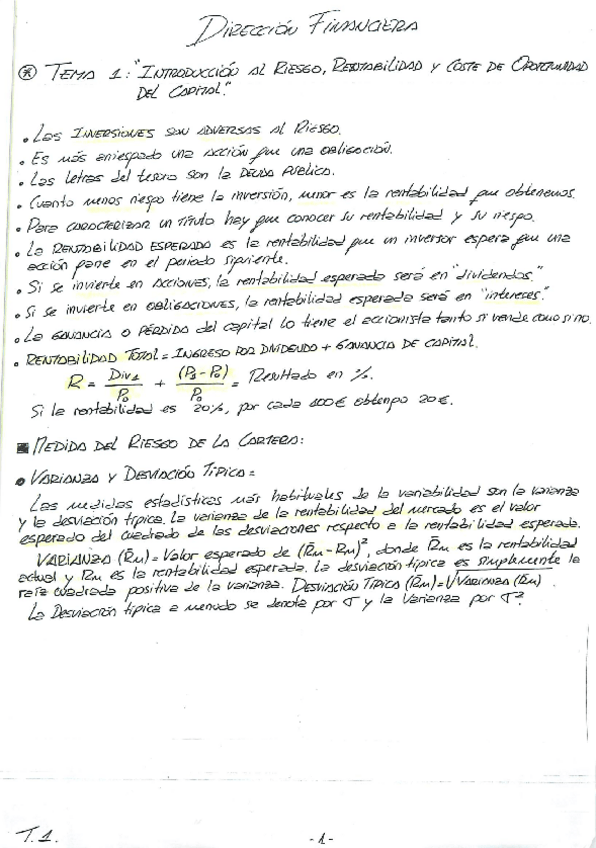 DIRECCIÓN FINANCIERA
* TEMA 1: "INTRODUCCIÓN AL RIESGO, RENTABILIDAD Y COSTE DE OPORTUNIDAD
DEL CAPITAL".
• Las INVERSIONES SON ADVERSAS AL RIESGO.
• Es más arriesgado una ACCIÓN que una OBLIGACIÓN.
• Las letras del tesoro son la DEUDA PÚBLICO.
• Cuanto menos riesgo tiene la inversión, menor es la rentabilidad que obtenemos.
• Para CARACTERIZAR un título hay que conocer su rentabilidad y su riesgo.
• La RENTABILIDAD ESPERADA es la rentabilidad que un inversor espera que una
acción gane en el periodo siguiente.
• Si se invierte en ACCIONES, la rentabilidad esperada será en "dividendos".
• Si se invierte en OBLIGACIONES, la rentabilidad esperada será en "intereses".
• La GANANCIA O PÉRDIDA del capital lo tiene el accionista tanto si vende como si no.
• RENTABILIDAD TOTAL = INGRESO POR DIVIDENDO + GANANCIA DE CAPITAL.
R = Div1/P0 + (P1 - P0)/P0 = Resultado en %.
Si la rentabilidad es 20%, por cada 100€ obtengo 20€.
■ MEDIDA DEL RIESGO DE LA CARTERA:
• VARIANZA Y DESVIACIÓN TÍPICA =
Las medidas estadísticas más habituales de la variabilidad son la varianza
y la desviación típica. La varianza de la rentabilidad del mercado es el valor
esperado del cuadrado de las desviaciones respecto a la rentabilidad esperada.
VARIANZA (R̃m) = Valor esperado de (R̃m - Rm)², donde R̃m es la rentabilidad
actual y Rm es la rentabilidad esperada. La desviación típica es simplemente la
raíz cuadrada positiva de la varianza. DESVIACIÓN TÍPICA (R̃m) = √VARIANZA (R̃m).
La Desviación típica a menudo se denota por σ y la Varianza por σ².
T.1.
-1-